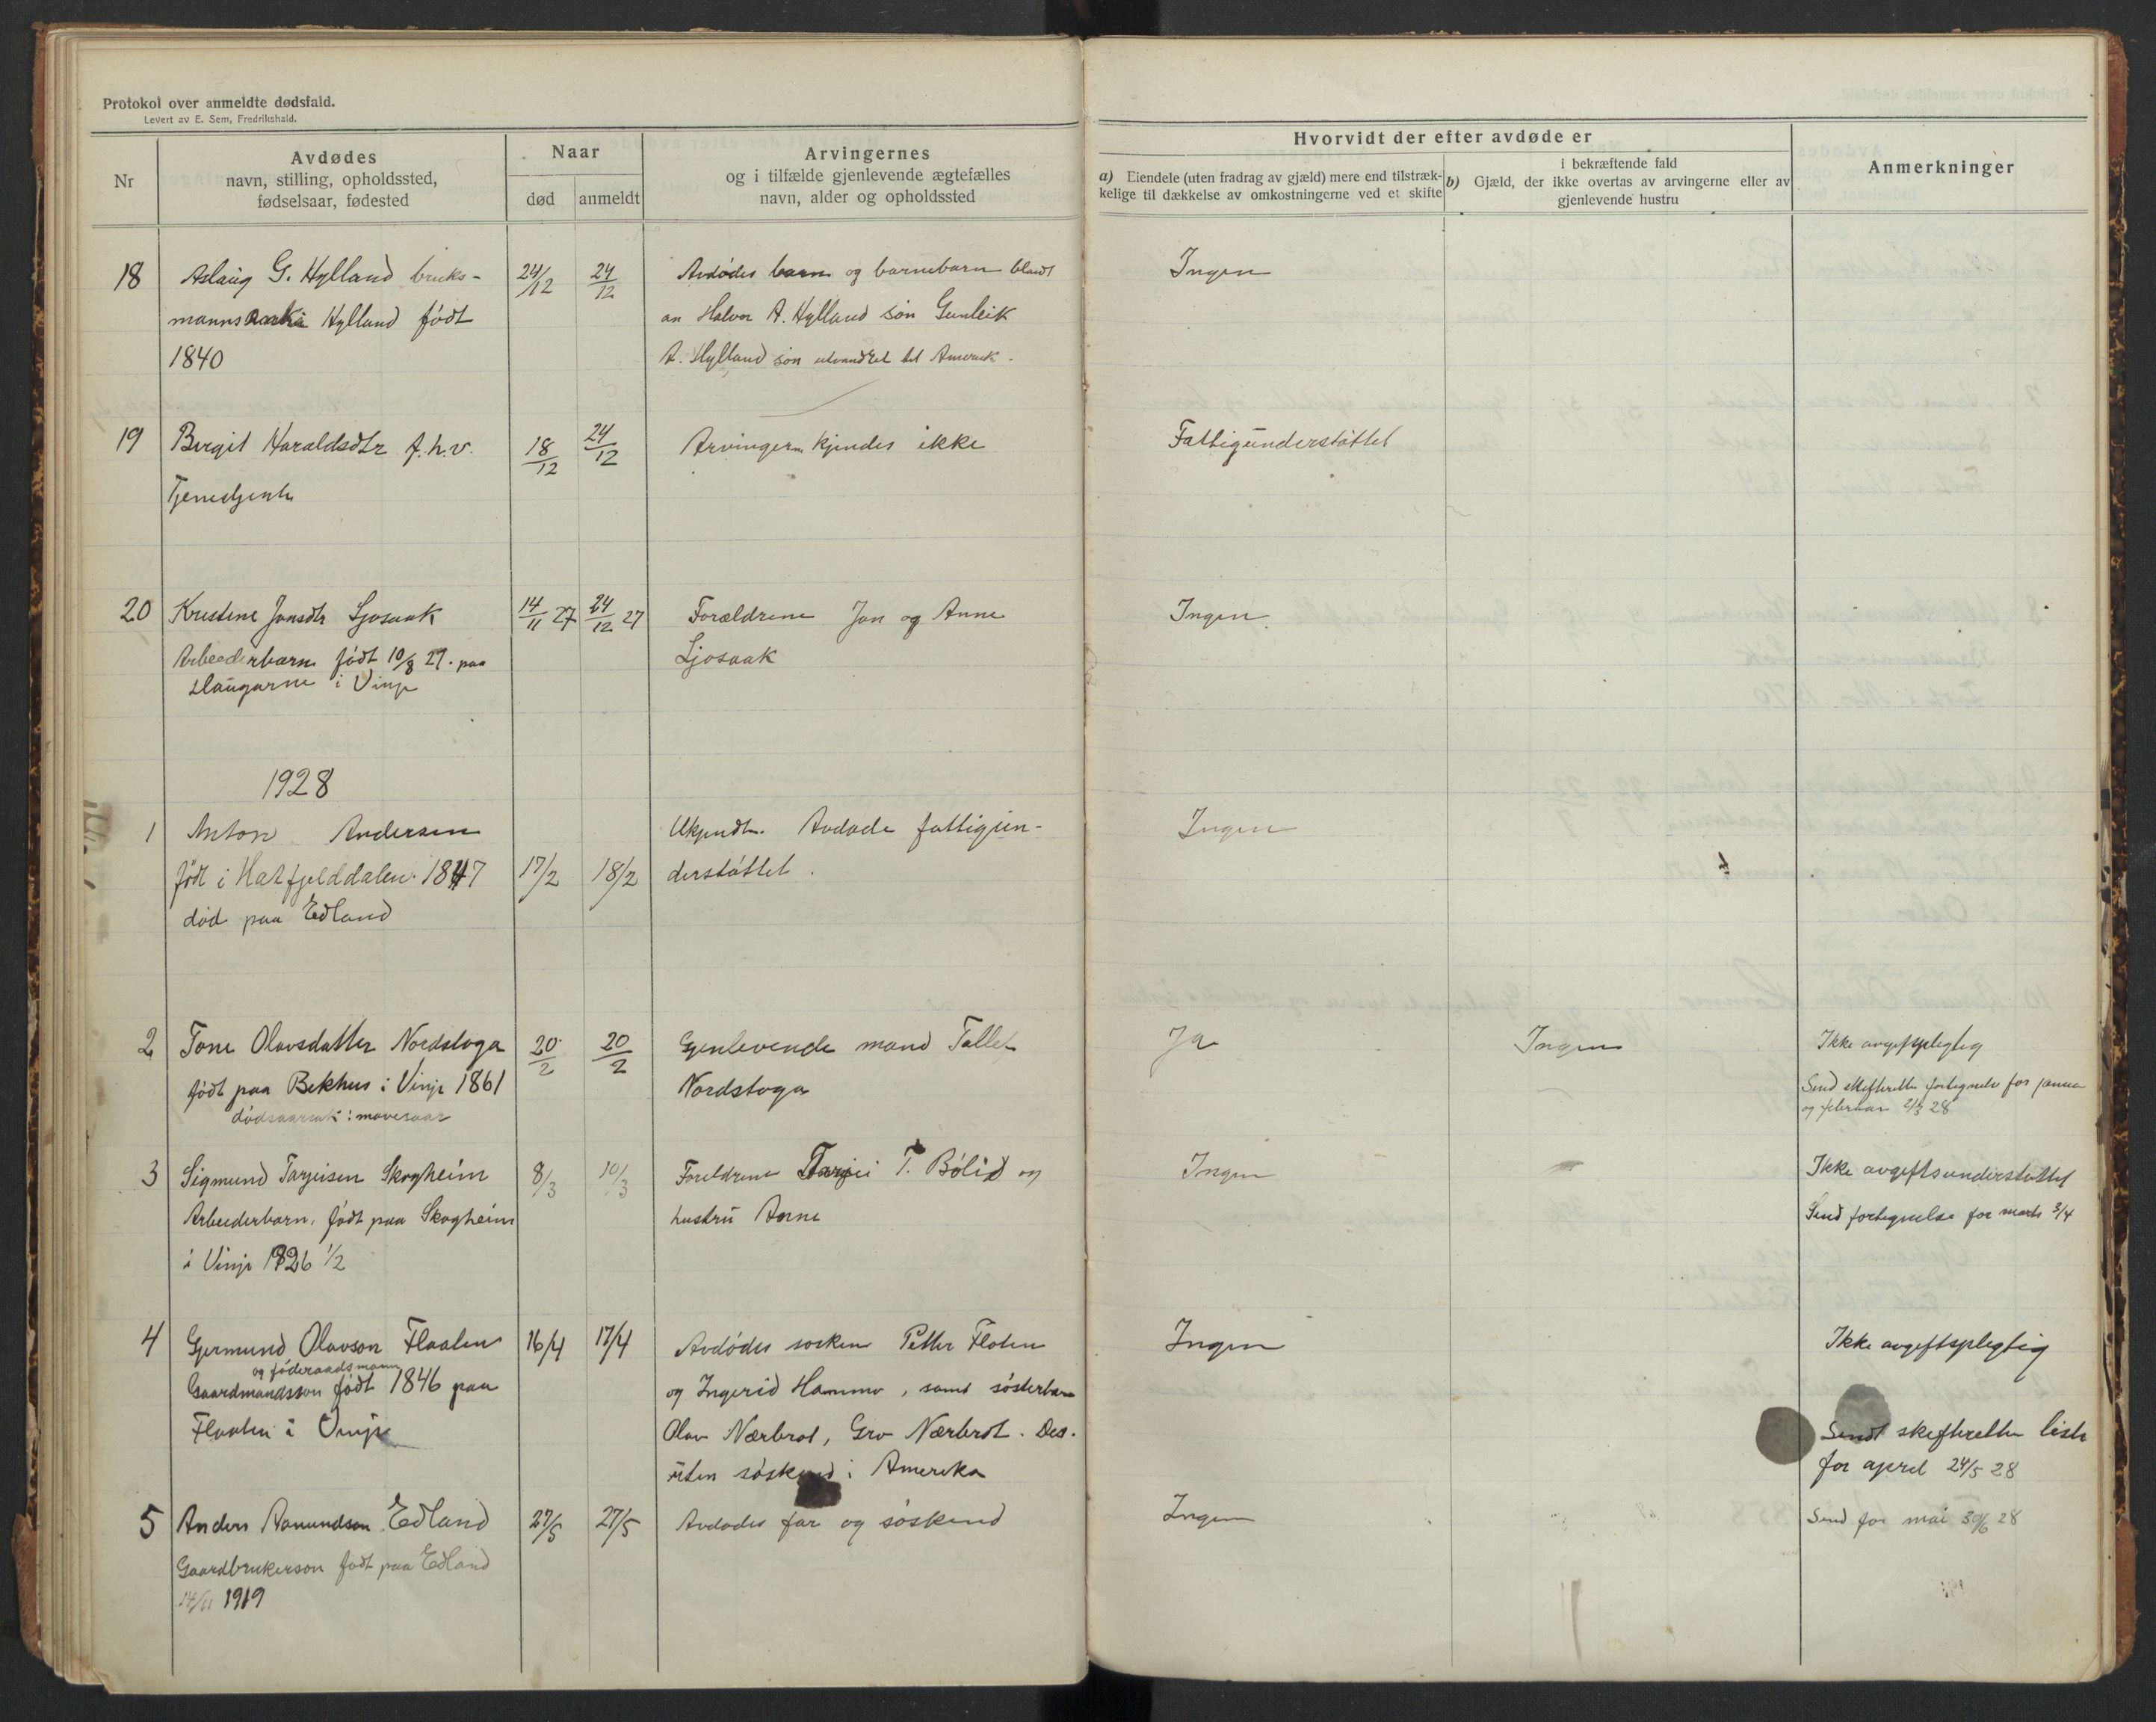 Protokol over anmeldte dødsfald.
Levert av E. Sem, Fredrikshald.
Nr
Avdødes
navn, stilling, opholdssted,
fødselsaar, fødested
Naar
død
anmeldt
Arvingernes
og i tilfælde gjenlevende ægtefælles
navn, alder og opholdssted
Hvorvidt der efter avdøde er
a) Eiendele (uten fradrag av gjæld) mere end tilstræk-
kelige til dækkelse av omkostningerne ved et skifte
i bekræftende fald
b) Gjæld, der ikke overtas av arvingerne eller av
gjenlevende hustru
Anmerkninger
18 Aslaug G. Hylland bruks- 24/12 24/12 Avdødes barn og barnebarn blandt Ingen
manns Hylland født an Halvor A. Hylland søn Gunleik
1840 A. Hylland søn utvandret til Amerik.
19 Birgit Haraldsdtr f.h.v. 18/12 24/12 Arvingern kjendes ikke Fattigunderstøttet
Tjenestjente
20 Kristine Jonsdtr Ljosaak 14/11 27 24/12 27 Forældrene Jon og Anne Ingen
Arbeederbarn født 10/8 27. paa Ljosaak
Haugarne i Vinje
1928
1 Anton Andersen Ukjendt. Avdøde fattigun- Ingen
født i Hatfjelddalen 1847 17/2 18/2 derstøttet.
død paa Edland
2 Tone Olavsdatter Nordstoga 20/2 20/2 Gjenlevende mand Tallet Ja Ingen Ikke avgiftsplegtig
født paa Bekhus i Vinje 1861 Nordstoga Send skifteretten fortegnelse for januar
dødsaarsak: mavesaar og februar 2/3 28
3 Sigmund Tarjeisen Skogheim 8/3 10/3 Foreldrene Tarjei T. Bølid og Ingen Ikke avgiftsunderstøttet
Arbeederbarn, født paa Skogheim hustru Anne Send fortegnelse for marts 3/4
i Vinje 1926 1/2
4 Gjermund Olavson Flaaten 16/4 17/4 Avdødes søsken Petter Floten Ingen Ikke avgiftsplegtig
og føderaadsmann
Gaardmandsson født 1846 paa og Ingerid Hamme, samt søsterbarn
Flaaten i Vinje Olav Nærbrot, Gro Nærbrot. Des- Sendt skifteretten liste
uten søskend i Amerika for april 24/5 28
5 Anders Aanundson Edland 27/5 27/5 Avdødes far og søskend Ingen Send for mai 30/6 28
Gaardbrukerson født paa Edland
14/11 1919